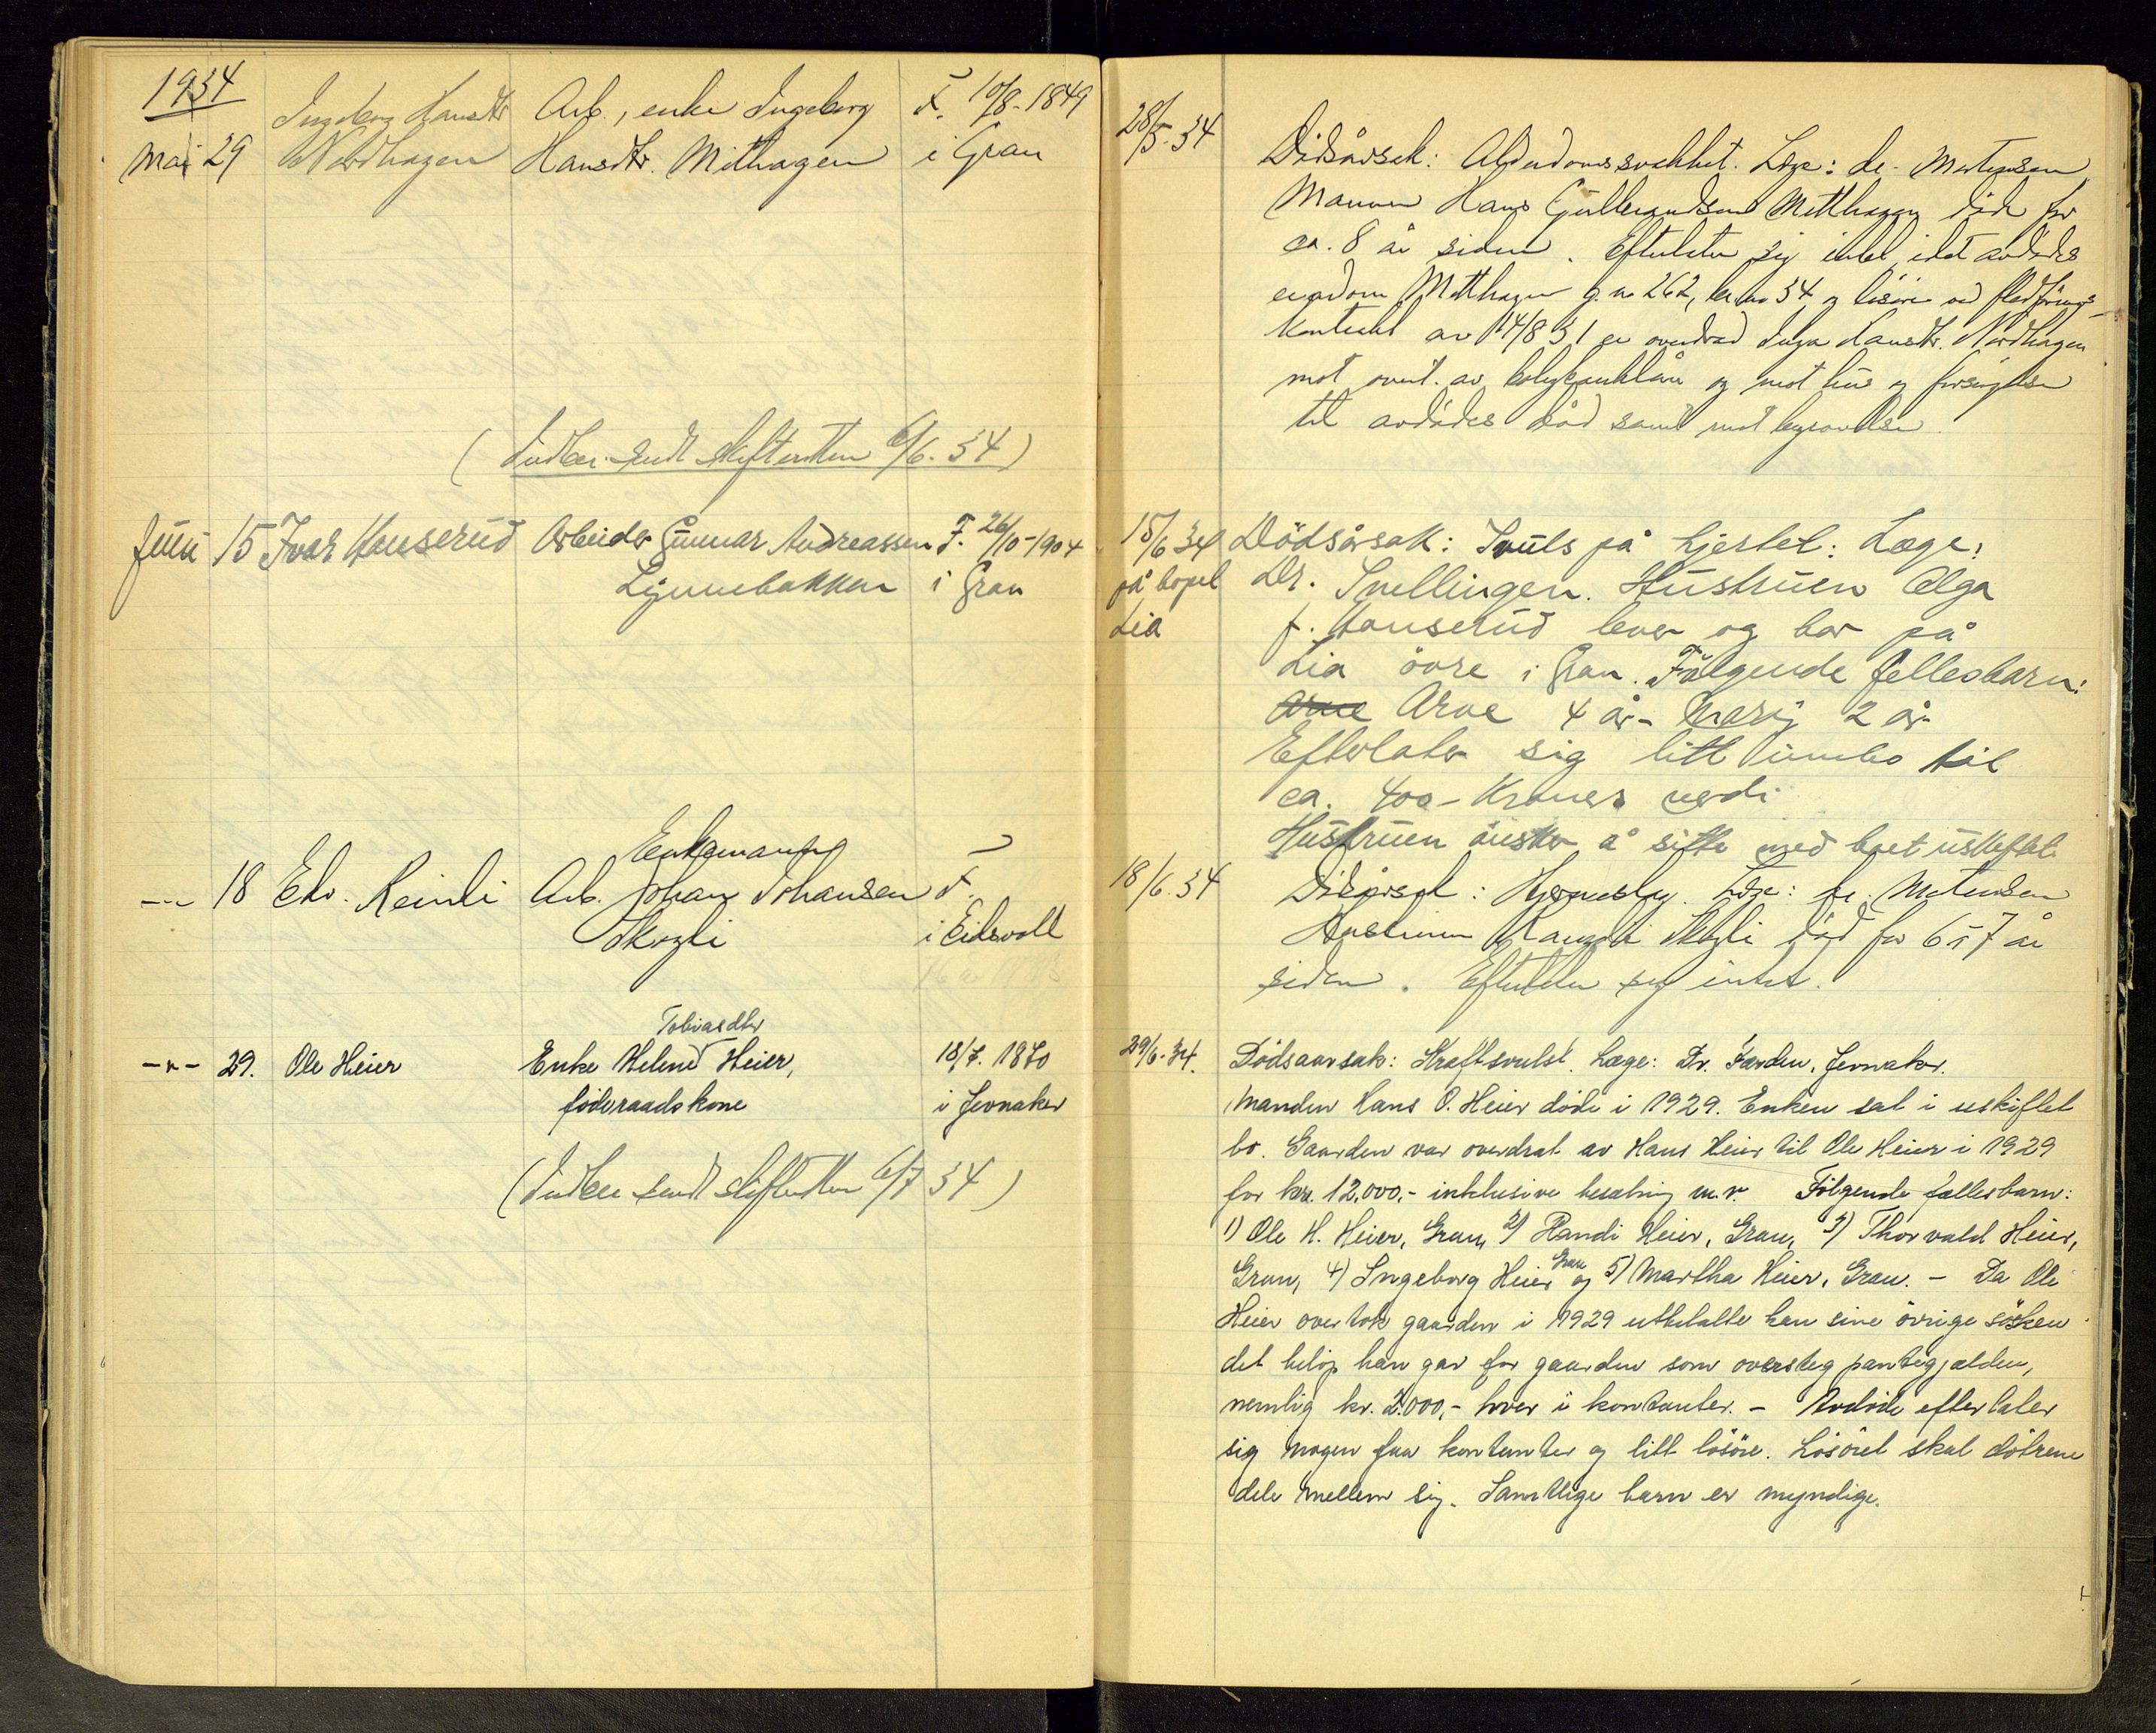 1934
Mai 29 Ingeborg Hansdtr Nordhagen
Arb., enke Ingeborg
Hansdtr. Mithagen
F. 10/8-1849
i Gran
28/5-34
Dödsårsak: Alderdomssvakhet. Læge: dr. Mortensen
Mannen Hans Gulbrandsen Mitthagen död for
ca. 8 år siden. Efterlater sig intet, idet avdödes
eiendom Mitthagen g.no 262, br.no 34 og lösöre ved flødförings-
kontrakt av 14/8 31 er overdrad Inga Hansdtr. Nordhagen
mot overt. av boligbanklån og mot hus og forsörgelse
til avdödes död samt mot begravelse.
(Indber. sendt skifteretten 6/6. 34)
Juni 15 Ivar Hauserud
Arbeider Gunnar Andreassen
Lynnebakken
F. 26/10-1904
i Gran
15/6 34
på bopel
Lia
Dödsårsak: Svuls på hjertet: Læge:
Dr. Snellingen. Hustruen Olga
f. Hauserud lever og bor på
Lia övre i Gran. Fölgende fellesbarn:
Arne Arve 4 år - Mary 2 år
Efterlater sig litt innbo til
ca. 400- Kroners verdi
Hustruen önsker å sitte med boet uskiftet.
-"- 18 Edv. Reinli
Enkemann
Arb. Johan Johansen
Skogli
F.
i Eidsvoll
18/6. 34
Dödsårsak: Hjerneslag. Læge: dr. Mortensen
Hustruen Ragnhi Skogli död for 6 à 7 år
siden. Efterlater sig intet.
-"- 29. Ole Heier
Tobiasdtr
Enke Helene Heier,
föderaadskone
18/7. 1870
i Jevnaker
29/6. 34.
Dödsaarsak: Kræftsvulst. Læge: Dr. Færden, Jevnaker.
Manden Hans O. Heier döde i 1929. Enken sat i uskiftet
bo. Gaarden var overdrat av Hans Heier til Ole Heier i 1929
for kr. 12.000,- inklusive besætning m.v. Fölgende fællesbarn:
1) Ole H. Heier, Gran, 2) Randi Heier, Gran, 3) Thorvald Heier,
Gran, 4) Ingeborg Heier Gran og 5) Martha Heier, Gran. - Da Ole
Heier overtok gaarden i 1929 utbetalte han sine övrige sösken
det belöp han gav for gaarden som oversteg pantegjælden,
nemlig kr. 2.000,- hver i kontanter. - Avdöde efterlater
sig nogen faa kontanter og litt lösöre. Lösöret skal dötrene
dele mellem sig. Samtlige barn er myndige.
(Indber sendt skifteretten 6/7 34)